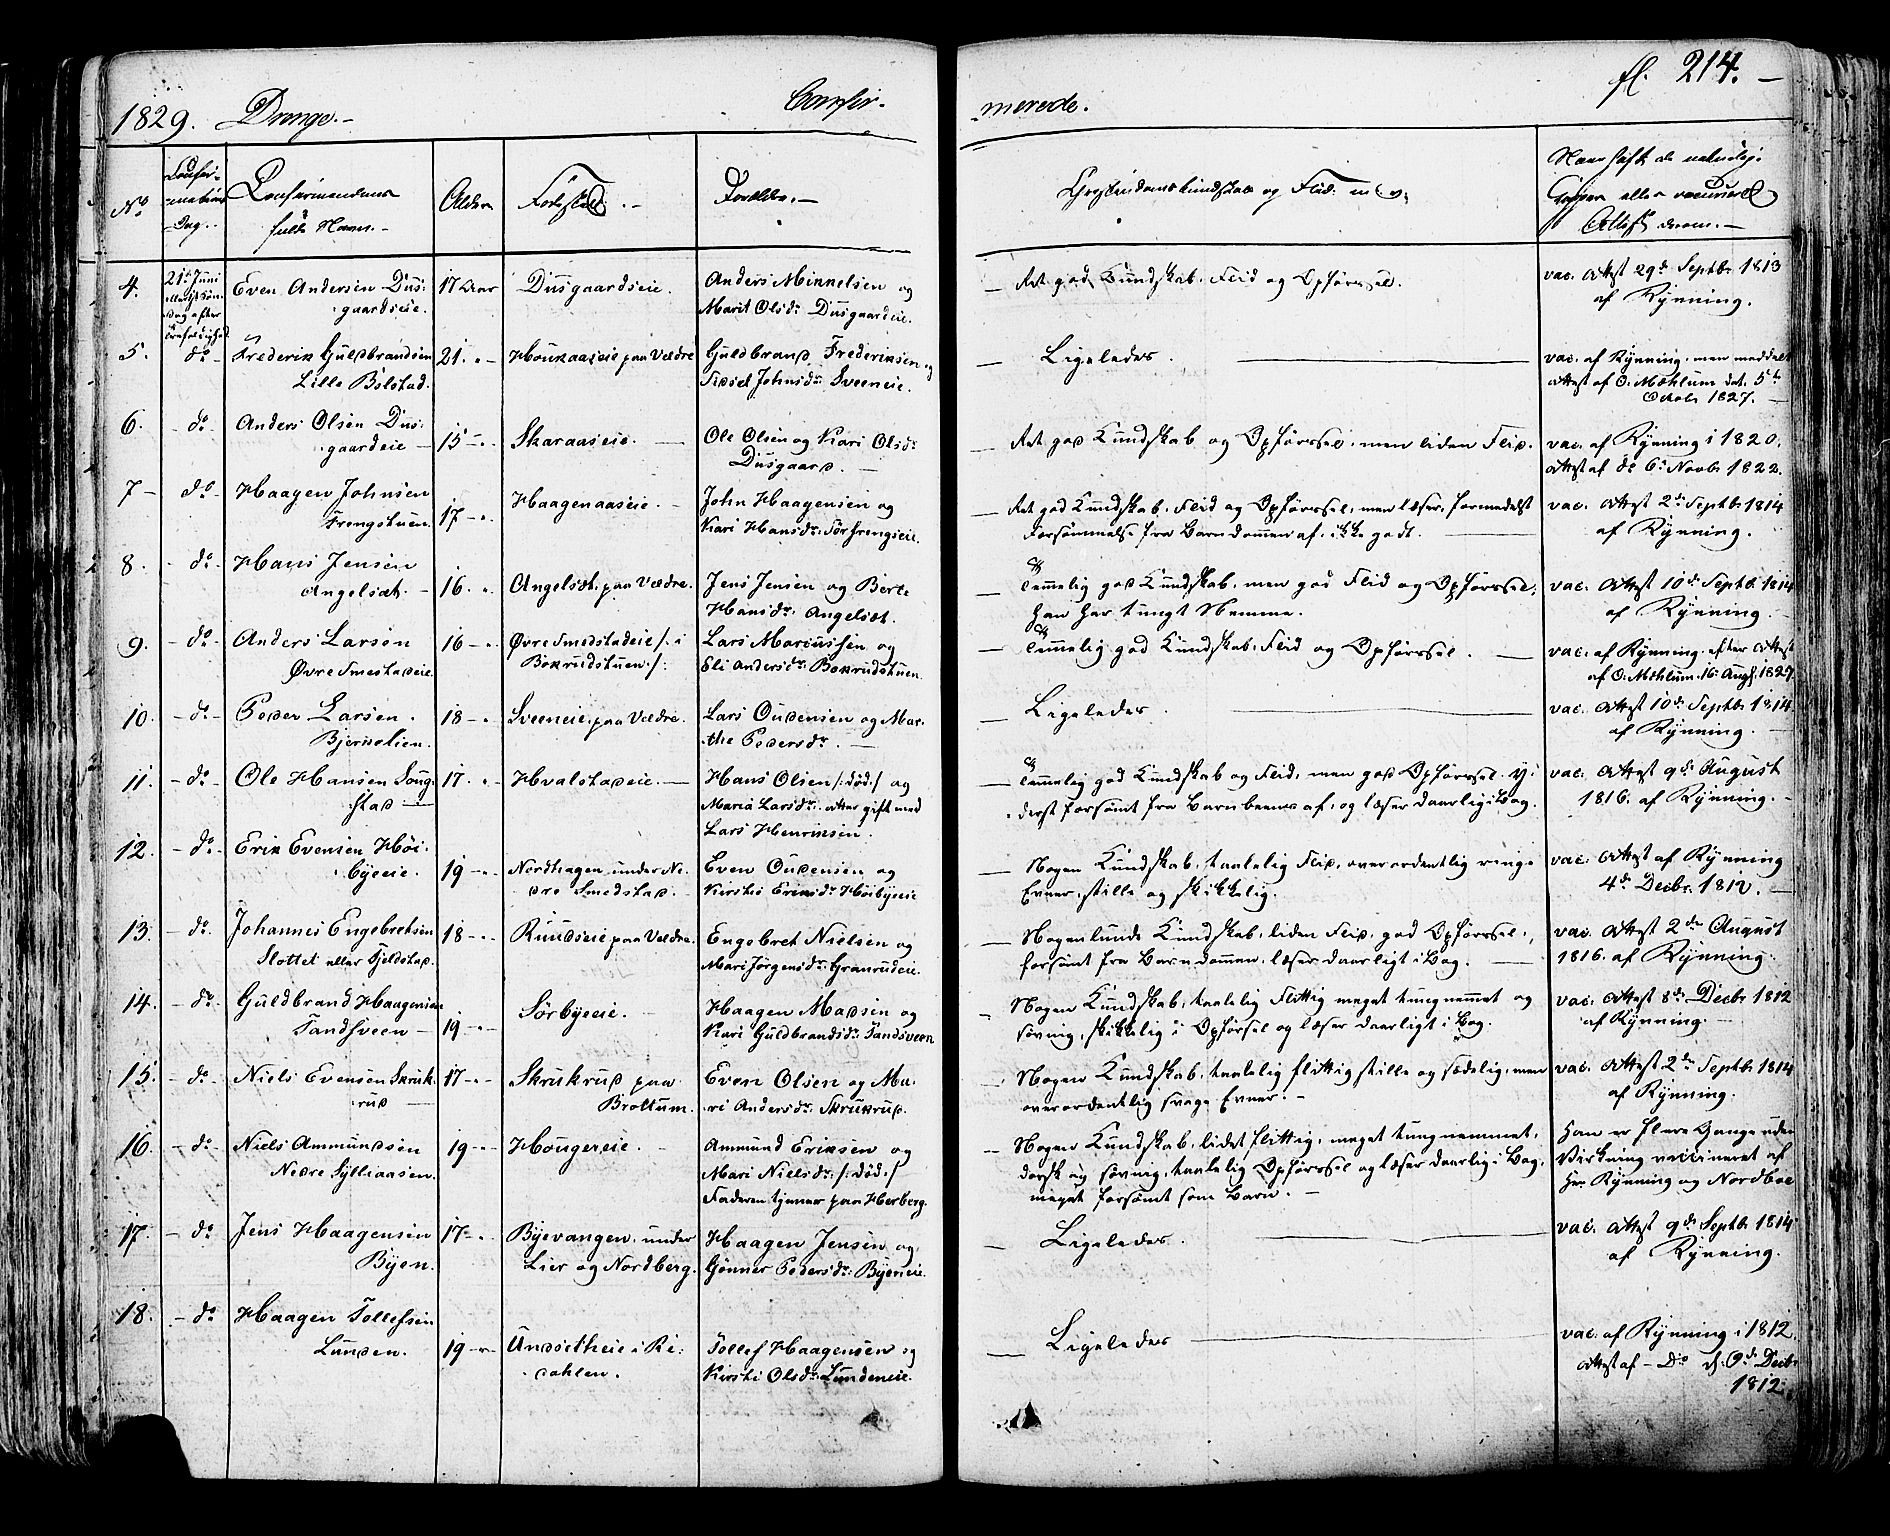 fl. 214. –
1829. Drenge. –
Confir-
merede.
No
Confir-
mations
Dag. –
Confirmandens
fulde Navn. –
Alder
Fødested. –
Forældre. –
Christendomskundskab og Flid. m. v.
Naar havt de naturlige
Kopper eller vaccineret
Attest derom. –
4.
21de Juni
Søn-
dag efter
Trefoldighed
Even Andersen Dus-
gaardseie.
17 Aar
Dusgaardseie.
Anders Minnelsen og
Marit Olsdr. Dusgaardeie.
– Ret god Kundskab, Flid og Opførsel.
vac. Attest 29de Septbr. 1813
af Rynning.
5.
do –
Frederik Guldbrandsen
Lille Bolstad.
21. „ –
Houkaaseie paa Veldre
Guldbrand Frederiksen og
Sidsel Johnsdr. Sveeneie.
– Ligeledes.
vac. af Rynning, men meddelt
Attest af O. Mæhlum dat. 5te
Octobr 1827. –
6.
– do –
Anders Olsen Dus-
gaardeie –
15 – „
Skaraaseie. –
Ole Olsen og Kari Olsdr.
Dusgaard. –
– Ret god Kundskab og Opførsel, men liden Flid.
vac. af Rynning i 1820.
Attest af do 6. Novbr 1822.
7 –
do –
Haagen Johnsen
Frengstuen
17 – „
Haagenaaseie. –
John Haagensen og
Kari Hansdr. Sørfrengseie.
– Ret god Kundskab, Flid og Opførsel, men læser, formedelst
Forsømmelse fra Barndommen af, ikke godt. –
vac. Attest 2de Septbr 1814
af Rynning.
8.
– do –
Hans Jensen
Angelsæt. –
16 – „
Angelsæt, paa Veldre.
Jens Jensen og Berte
Hansdr. Angelsæt.
– Temmelig god Kundskab, men god Flid og Opførsel,
han har tungt Nemme.
vac. Attest 10de Septbr 1814
af Rynning. –
9.
– do –
Anders Larsen
Øvre Smestadeie.
16 – „
Øvre Smedstadeie /: i
Bokrudstuen :/
Lars Mariussen og
Eli Andersdr. Bokrudstuen.
– Temmelig god Kundskab, Flid og Opførsel. –
vac. af Rynning, efter Attest
af O. Mæhlum 16. Augst. 1827.
10.
– do –
Peder Larsen.
Bjernelien.
18 – „
Sveeneie, paa Veldre.
Lars Oudensen og Mar-
the Pedersdr. –
– Ligeledes.
vac. Attest 10de Septbr 1814
af Rynning. –
11.
– do –
Ole Hansen Soug-
stad –
17. „
Hvalstadeie. –
Hans Olsen /: død :/ og
Maria Larsdr. atter gift med
Lars Henriksen.
– Temmelig god Kundskab og Flid, men god Opførsel. Y-
derst forsømt fra Barnbeenet af, og læser daarlig i Bog.
vac. Attest 9de August
1816. af Rynning. –
12.
– do –
Erik Evensen Höi-
byeeie.
19 – „
Nordhagen under Ne-
dre Smedstad. –
Even Oudensen og
Kirsti Eriksdr. Höibyeeie
– Nogen Kundskab, taalelig Flid, overordentlig ringe
Evner, stille og skikkelig.
vac. Attest af Rynning
4de Decbr. 1812. –
13.
– do –
Johannes Engebretsen
Slottet eller Fjeldstad.
18 – „
Ruudseie paa Veldre.
Engebret Nielsen og
Mari Jørgensdr. Granrudeie.
– Nogenlunde Kundskab, liden Flid, god Opførsel,
forsømt fra Barndommen, læser daarligt i Bog. –
vac. Attest 2den August
1816. af Rynning.
14.
– do –
Guldbrand Haagensen
Sandsveen –
19 – „
Sørbyeeie. –
Haagen Madsen og
Kari Guldbrandsdr. Sandsveen
– Nogen Kundskab, taalelig flittig meget tungnemmet og
søvnig, skikkelig i Opførsel og læser daarligt i Bog.
vac. Attest 8de Decbr 1812
af Rynning. –
15.
– do –
Niels Evensen Skruk-
rud –
17 – „
Skrukrud paa
Brottum.
Even Olsen og Ma-
ri Andersdr. Skrukrud.
– Nogen Kundskab, taalelig flittig, stille og sædelig, men
overordentlig svage Evner. –
vac. Attest 2den Septbr 1814
af Rynning.
16.
– do –
Niels Ammundsen
Nedre Sylliaasen.
19 – „
Hougereie. –
Ammund Eriksen og
Mari Nielsdr. /: død :/
Faderen tjener paa Herberg.
– Nogen Kundskab, lidet flittig, meget tungnemmet,
dorsk og søvnig, taalelig Opførsel og læser daarlig i Bog,
meget forsømt som Barn. –
Han er flere Gange uden
Virkning vaccineret af
Hrr. Rynning og Nordboe
17.
– do
Jens Haagensen
Byen.
17 – „
Byevangen, under
Lier og Nordberg.
Haagen Jensen og
Gönner Pedersdr. Byeneie.
– Ligeledes.
vac. Attest 9de Septbr 1814
af Rynning.
18.
– do
Haagen Tollefsen
Lunden.
19 – „
Undsetheie i Ri-
dahlen.
Tollef Haagensen og
Kirsti Olsdr. Lundeneie.
– Ligeledes
vac. af Rynning i 1812.
Attest af – Do d. 9de Decbr
1812.